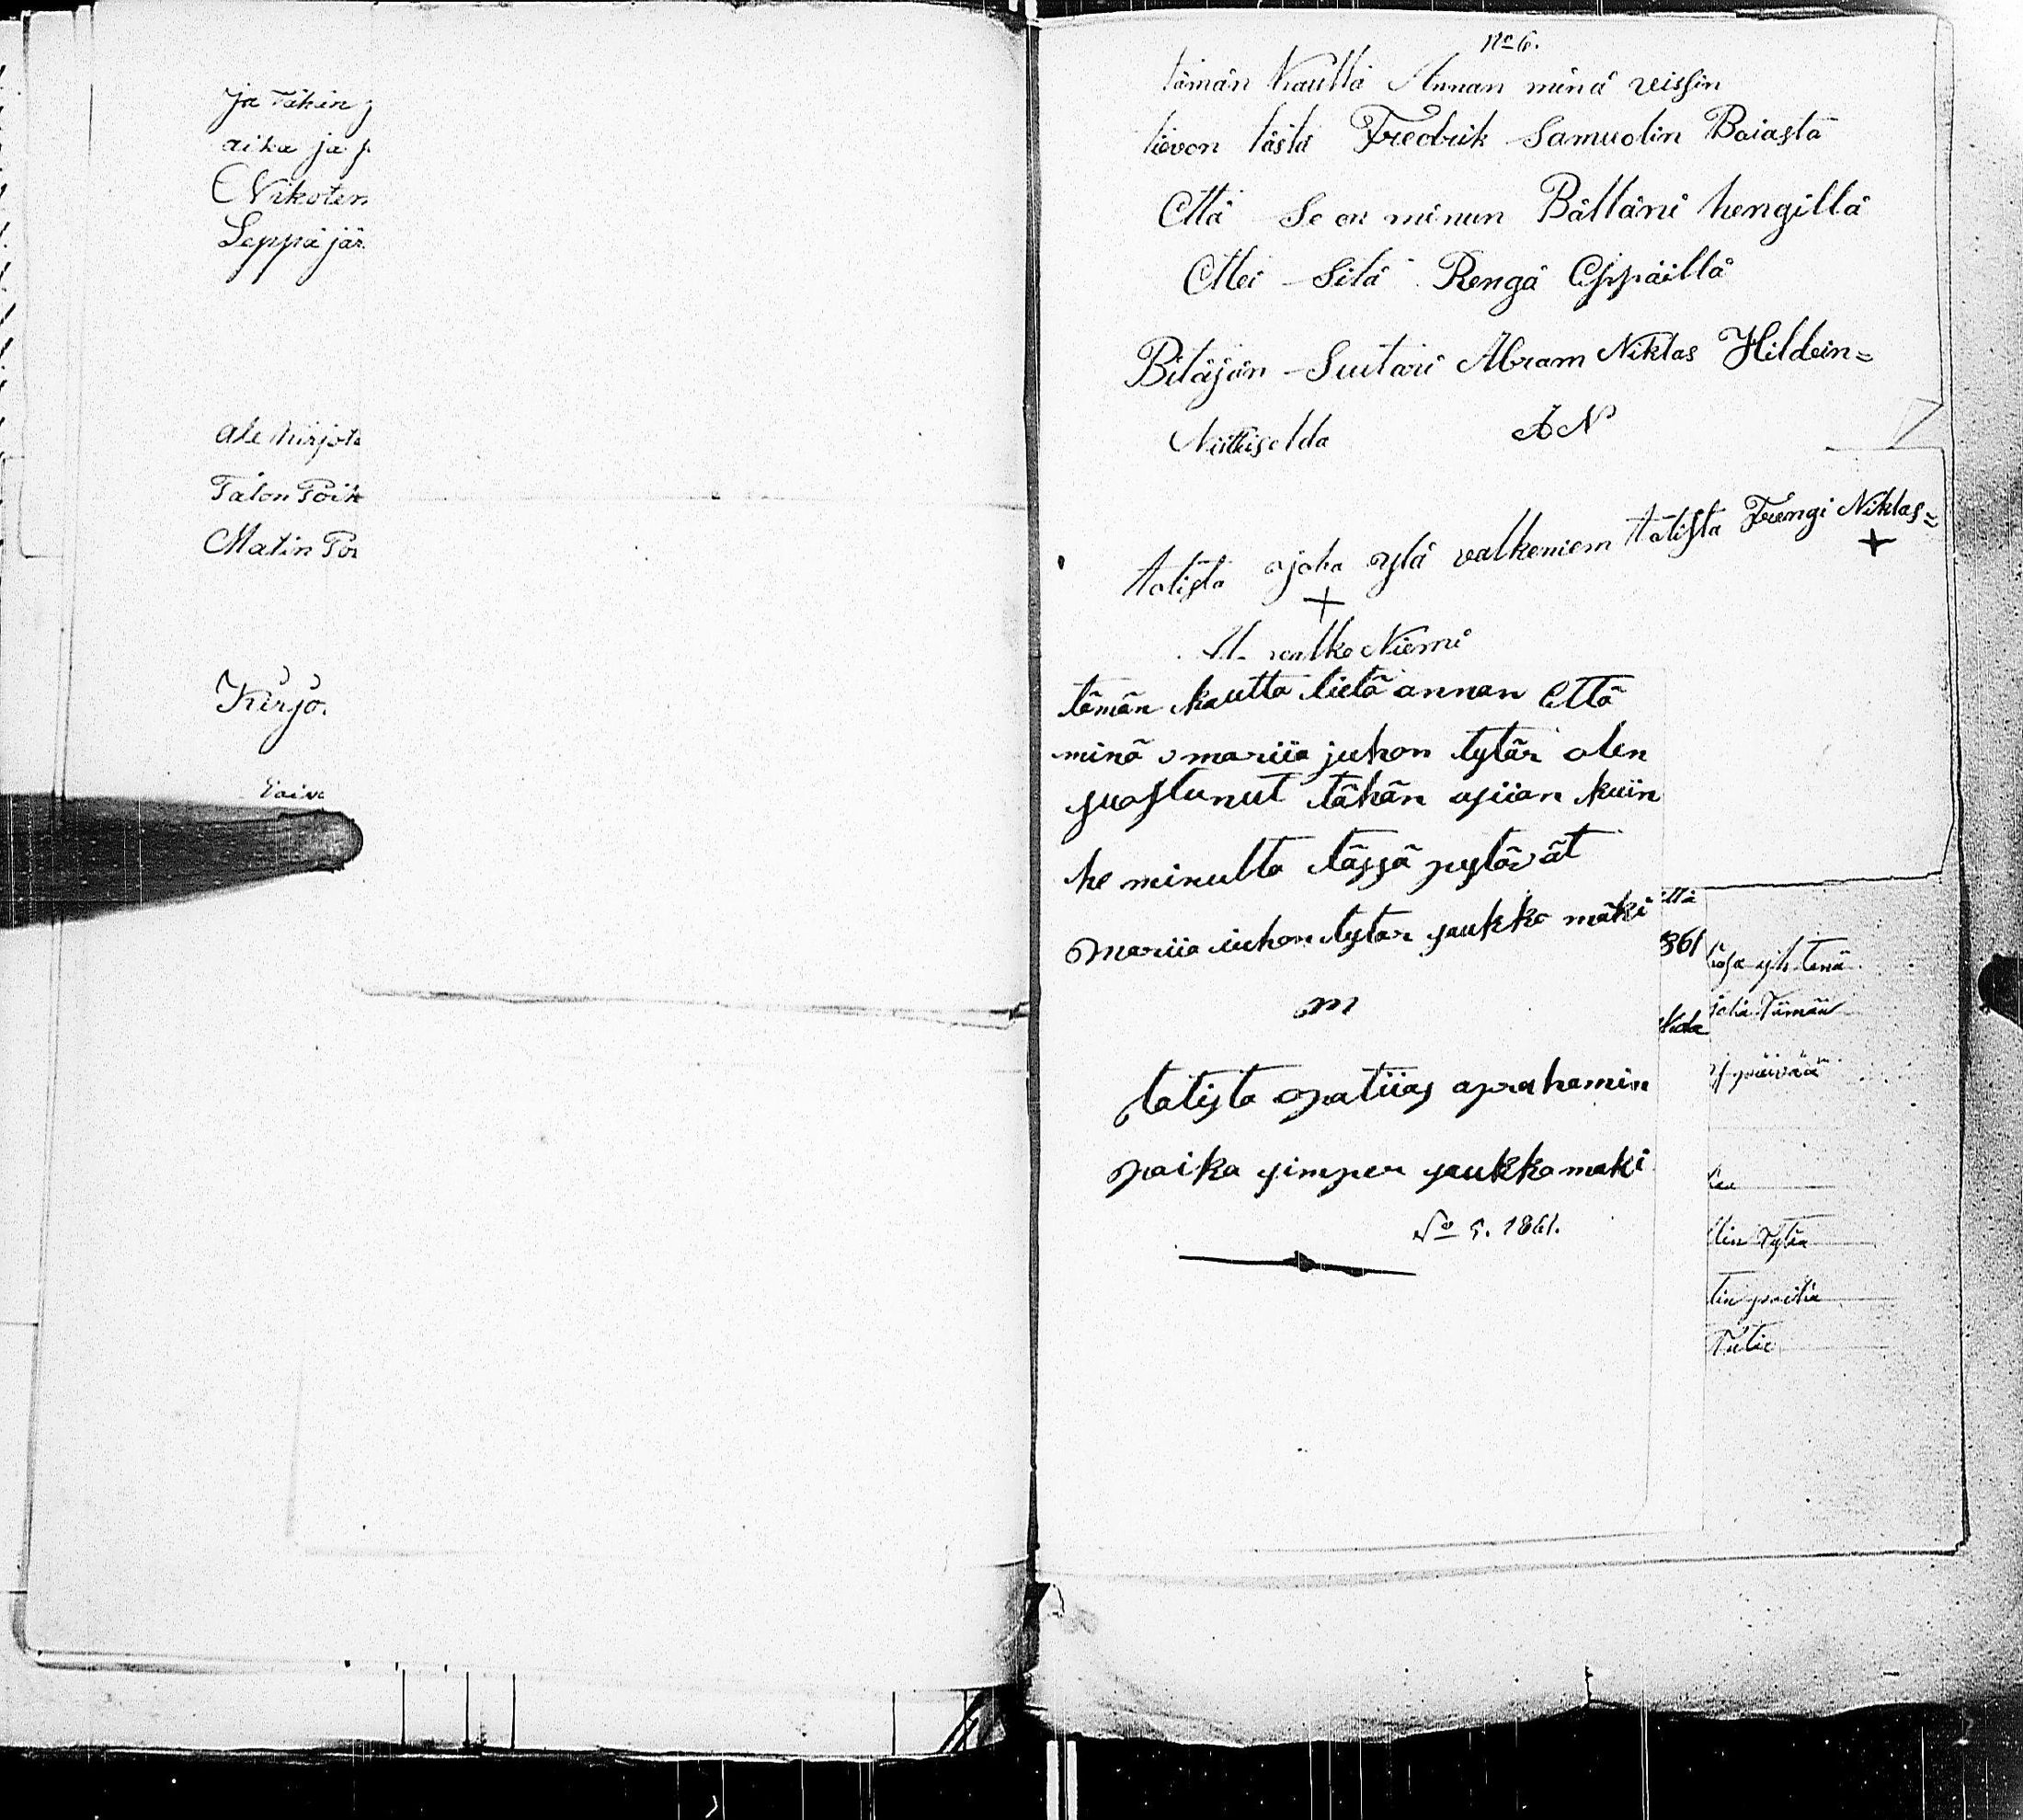 ja
aika ja
Nikoten
Leppäjär
ale kirjot
Talon Poik
Matin Po
Kirjo
No 6.
tämän kautta Annan minä veissin
tievon tästä Fredrik Samuolin Boiasta
Että Se on minun Bälläni hengillä
Ettei Sitä Rengä Eppäillä
Bitäjän Suutari Abram Niklas Hildein=
Niskiselda AN
totista ojoha ylä valkeniem totista Frengi Niklas=
+ +
valke Niemi
tämän kautta tietä annan Että
minä mariia juhon tytär olen
suostunut tähän asiian kuin
he minulta tässä pytävät
mariia iuhon tytar saukko mäki
m
totista matiias aprahamin
poika simper saukkomaki
No 5. 1861.
ttä
861
kda
yh tenä
päivää
tin poika